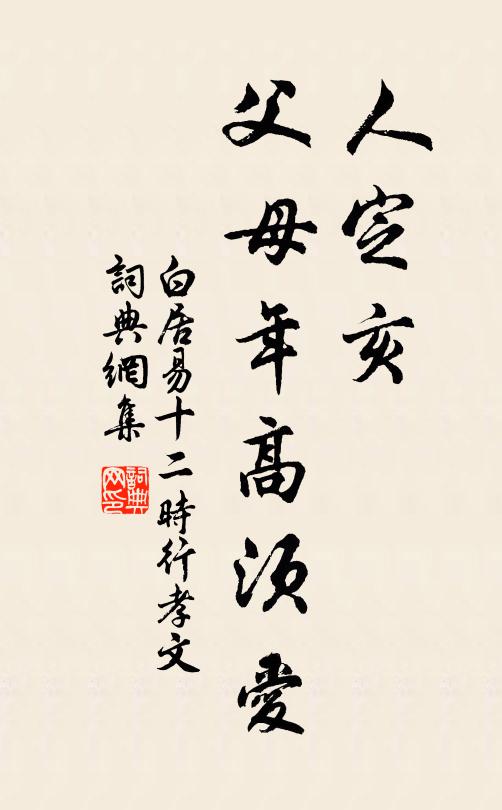 人定亥
父母年高須愛
白居易十二時行孝文
詞典網集
詞典网印